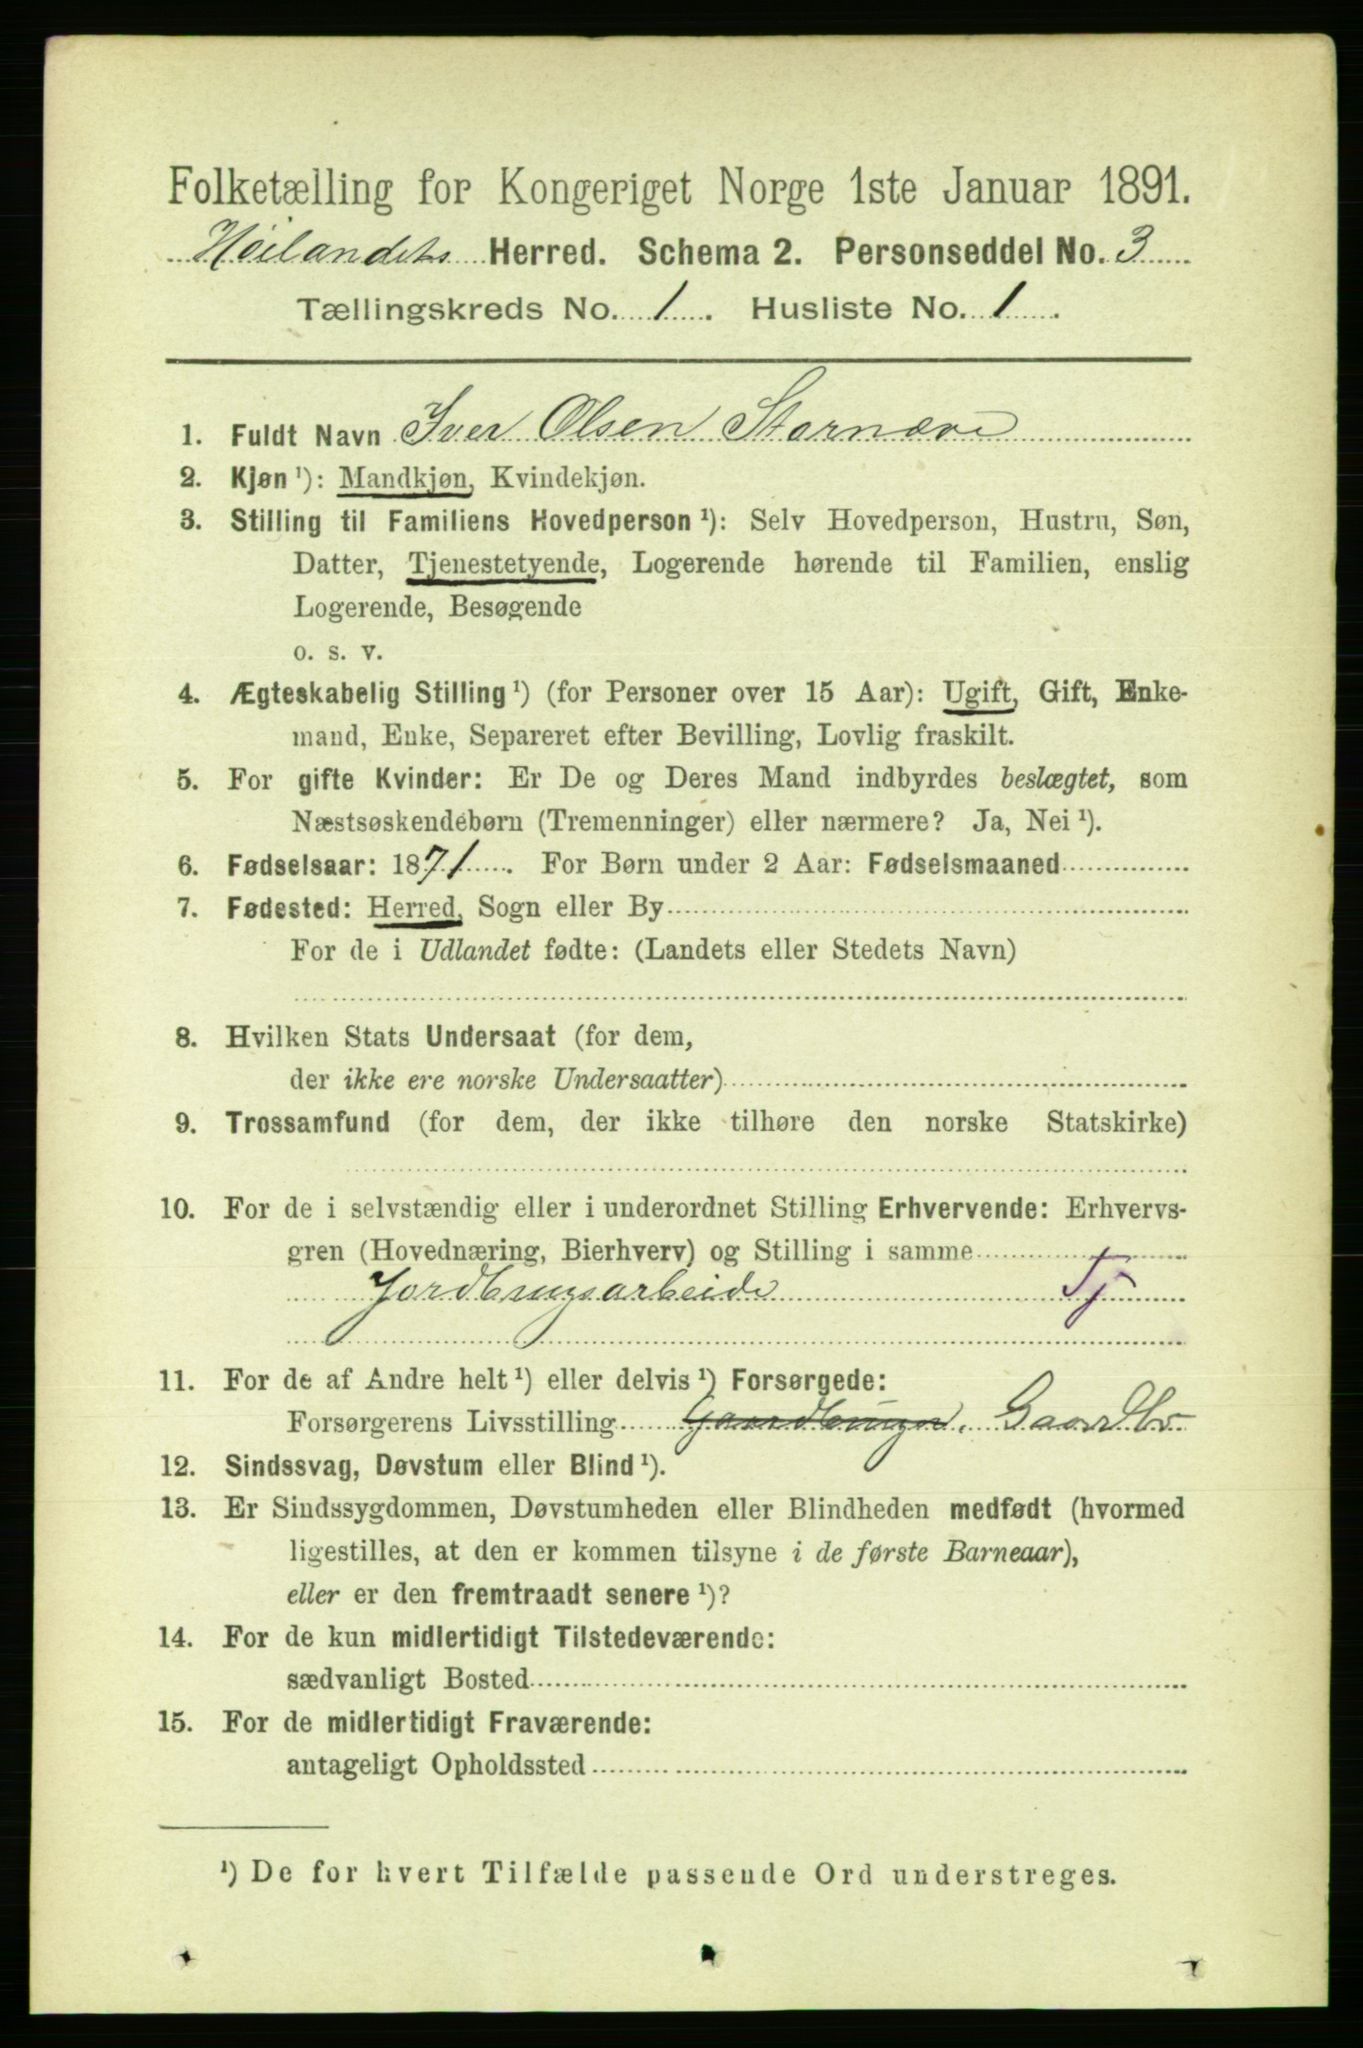 Folketælling for Kongeriget Norge 1ste Januar 1891.
Höilandets Herred. Schema 2. Personseddel No. 3
Tællingskreds No. 1. Husliste No. 1.
1. Fuldt Navn Iver Olsen Stornæve
2. Kjøn ¹): Mandkjøn, Kvindekjøn.
3. Stilling til Familiens Hovedperson ¹): Selv Hovedperson, Hustru, Søn,
Datter, Tjenestetyende, Logerende hørende til Familien, enslig
Logerende, Besøgende
o. s. v.
4. Ægteskabelig Stilling ¹) (for Personer over 15 Aar): Ugift, Gift, Enke-
mand, Enke, Separeret efter Bevilling, Lovlig fraskilt.
5. For gifte Kvinder: Er De og Deres Mand indbyrdes beslægtet, som
Næstsøskendebørn (Tremenninger) eller nærmere? Ja, Nei ¹).
6. Fødselsaar: 1871. For Børn under 2 Aar: Fødselsmaaned
7. Fødested: Herred, Sogn eller By
For de i Udlandet fødte: (Landets eller Stedets Navn)
8. Hvilken Stats Undersaat (for dem,
der ikke ere norske Undersaatter)
9. Trossamfund (for dem, der ikke tilhøre den norske Statskirke)
10. For de i selvstændig eller i underordnet Stilling Erhvervende: Erhvervs-
gren (Hovednæring, Bierhverv) og Stilling i samme
Jordbrugsarbeide Tj
11. For de af Andre helt ¹) eller delvis ¹) Forsørgede:
Forsørgerens Livsstilling Gaardbruger. Gaardbr
12. Sindssvag, Døvstum eller Blind ¹).
13. Er Sindssygdommen, Døvstumheden eller Blindheden medfødt (hvormed
ligestilles, at den er kommen tilsyne i de første Barneaar),
eller er den fremtraadt senere ¹)?
14. For de kun midlertidigt Tilstedeværende:
sædvanligt Bosted
15. For de midlertidigt Fraværende:
antageligt Opholdssted
¹) De for hvert Tilfælde passende Ord understreges.